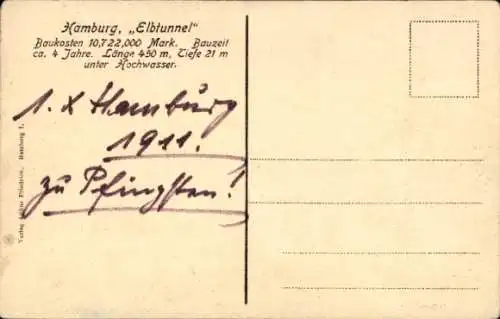 Hamburg, „Elbtunnel"
Baukosten 10,722,000 Mark. Bauzeit
ca. 4 Jahre. Länge 450 m, Tiefe 21 m
unter Hochwasser.
1. x Hamburg
1911.
zu Pfingsten!
Verlag Hamburg 1.